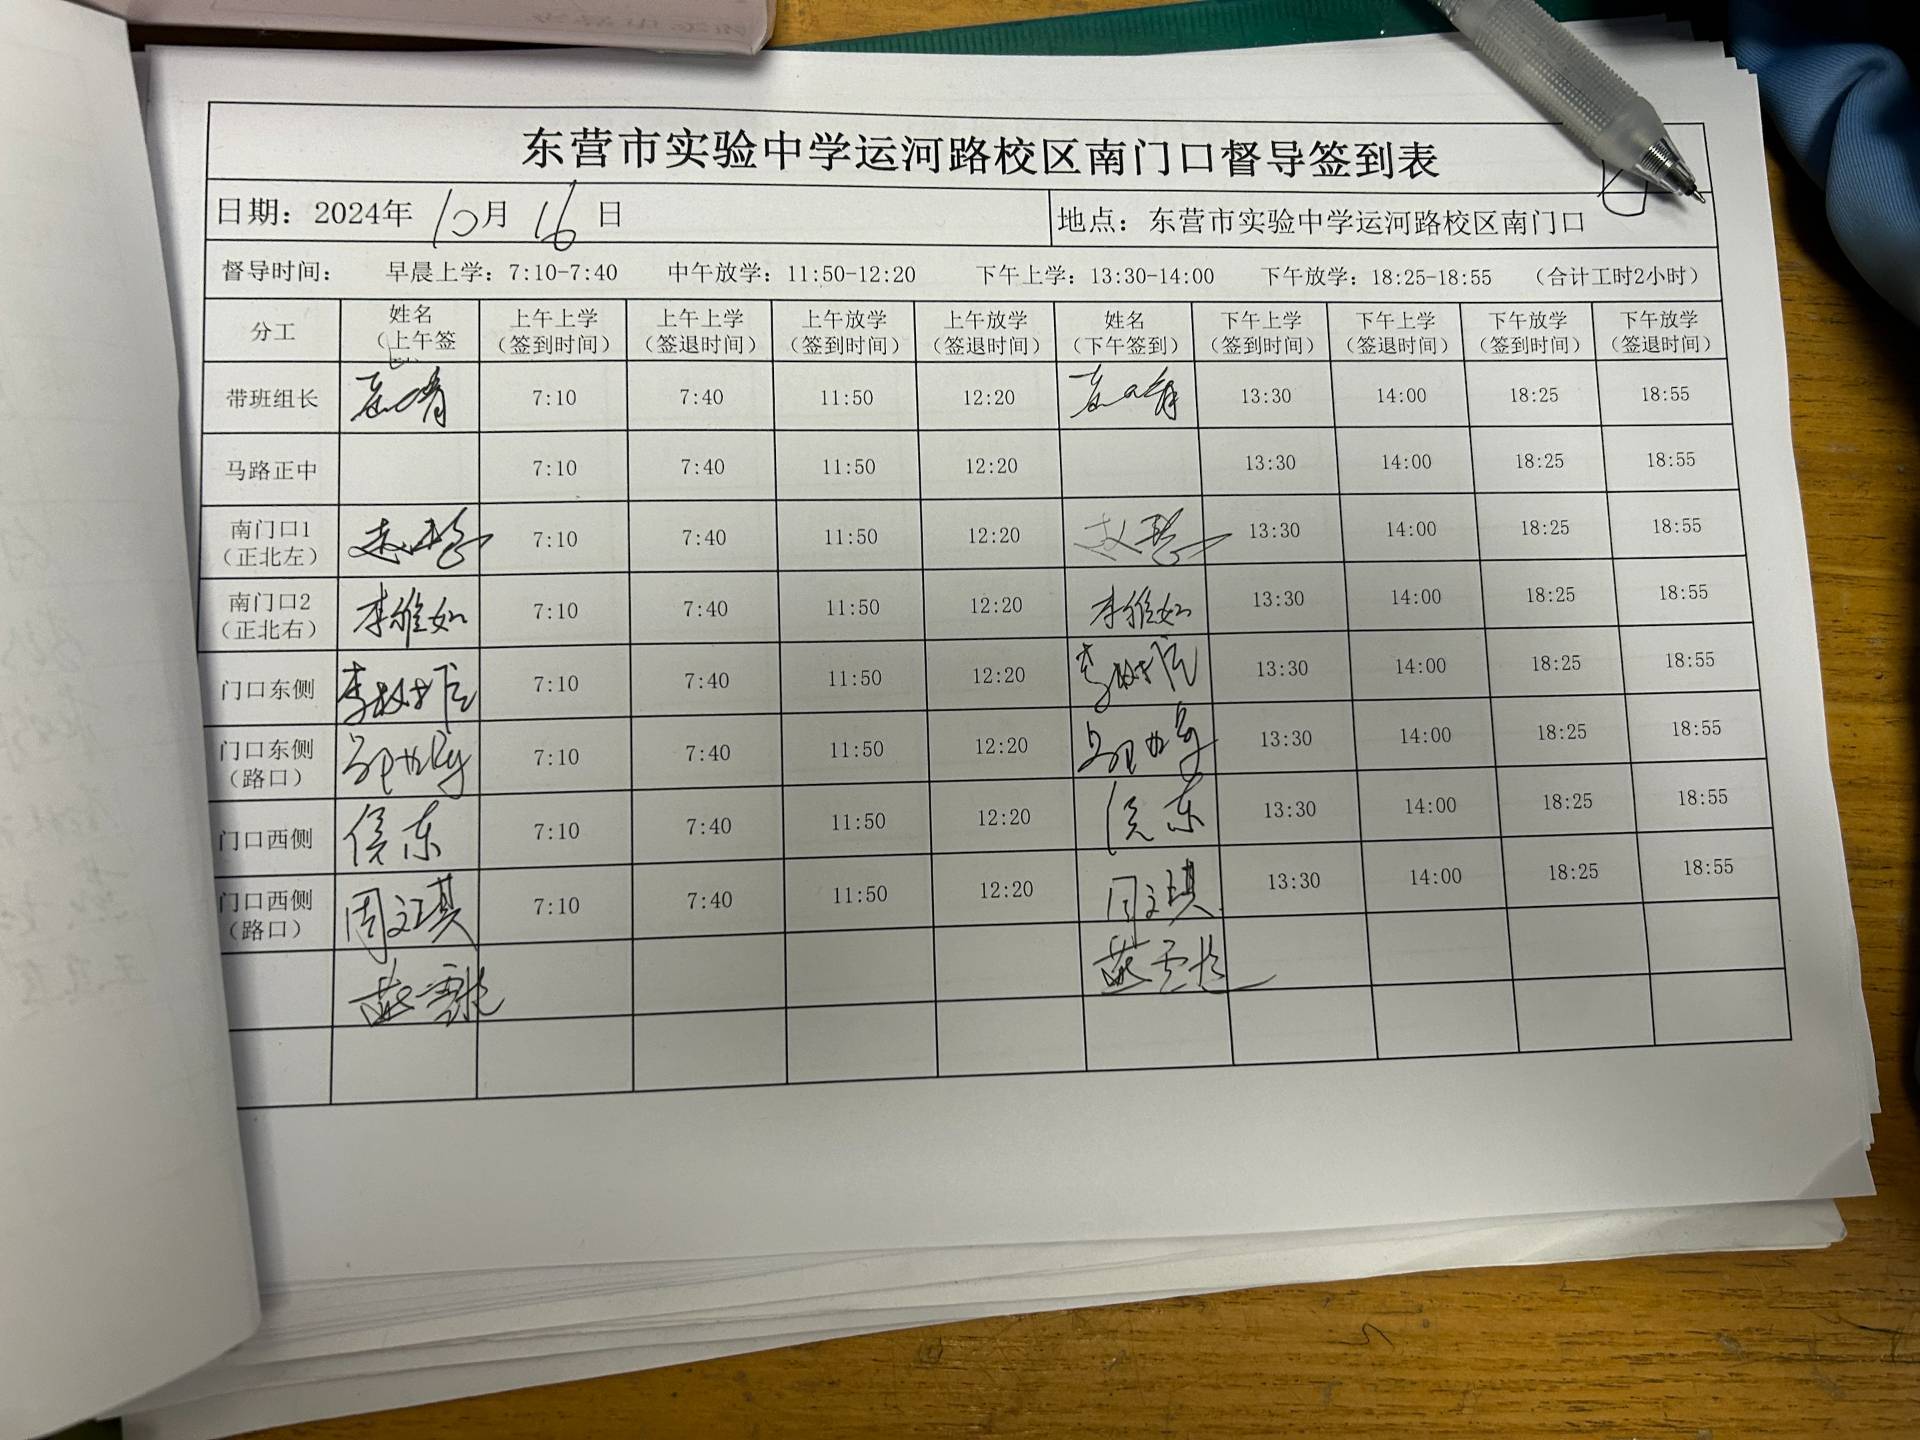 东营市实验中学运河路校区南门口督导签到表
日期：2024年 10月 16 日 地点：东营市实验中学运河路校区南门口
督导时间： 早晨上学：7:10-7:40 中午放学：11:50-12:20 下午上学：13:30-14:00 下午放学：18:25-18:55 （合计工时2小时）
分工 姓名（上午签 上午上学（签到时间） 上午上学（签退时间） 上午放学（签到时间） 上午放学（签退时间） 姓名（下午签到） 下午上学（签到时间） 下午上学（签退时间） 下午放学（签到时间） 下午放学（签退时间）
带班组长 7:10 7:40 11:50 12:20 13:30 14:00 18:25 18:55
马路正中 7:10 7:40 11:50 12:20 13:30 14:00 18:25 18:55
南门口1（正北左） 7:10 7:40 11:50 12:20 13:30 14:00 18:25 18:55
南门口2（正北右） 李维如 7:10 7:40 11:50 12:20 李维如 13:30 14:00 18:25 18:55
门口东侧 7:10 7:40 11:50 12:20 13:30 14:00 18:25 18:55
门口东侧（路口） 7:10 7:40 11:50 12:20 13:30 14:00 18:25 18:55
门口西侧 侯东 7:10 7:40 11:50 12:20 侯东 13:30 14:00 18:25 18:55
门口西侧（路口） 周文琪 7:10 7:40 11:50 12:20 周文琪 13:30 14:00 18:25 18:55